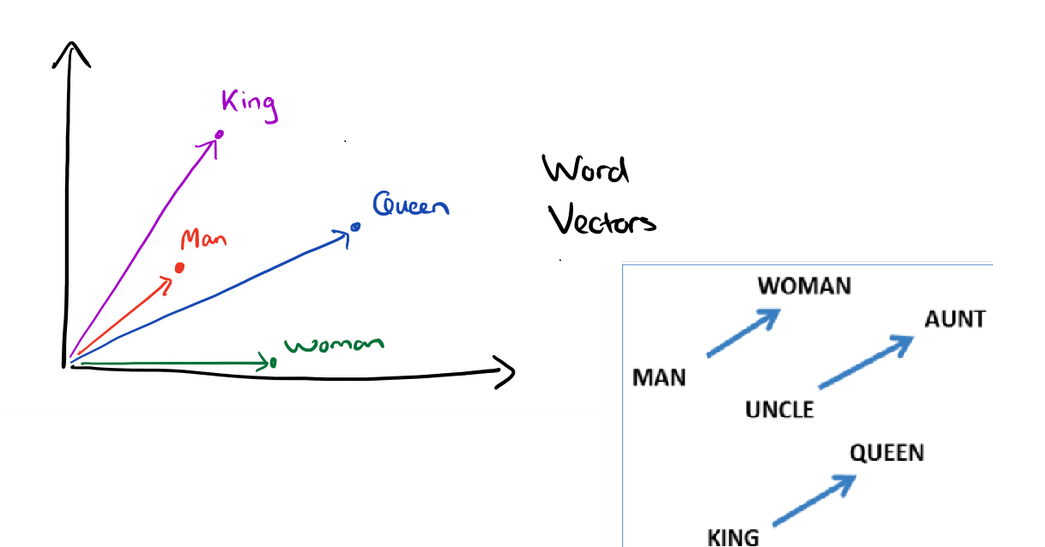 King
Queen
Man
Woman
Word
Vectors
WOMAN
AUNT
MAN
UNCLE
QUEEN
KING